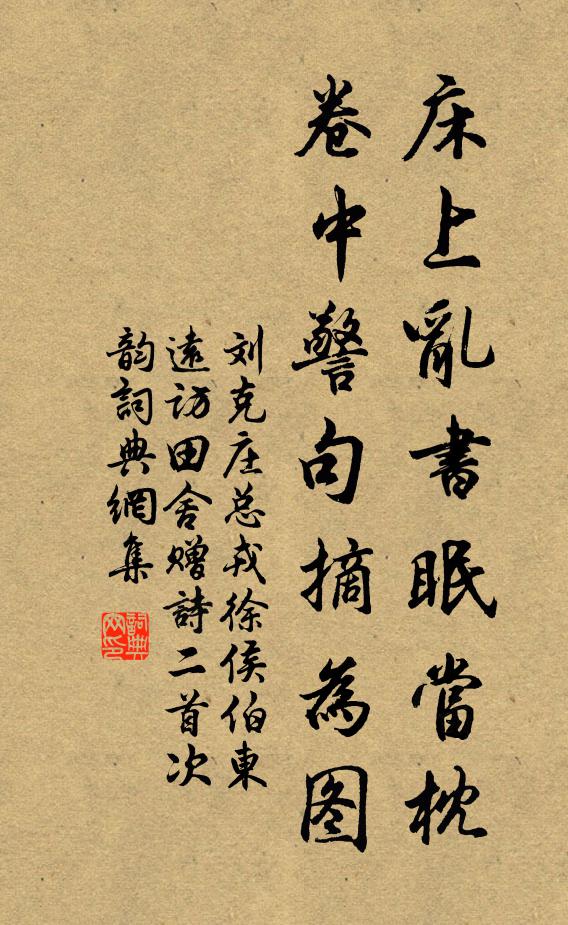 床上亂書眠當枕
卷中警句摘為图
刘克庄总戎徐侯伯東
遠访田舍赠詩二首次
韵詞典網集
詞典网印